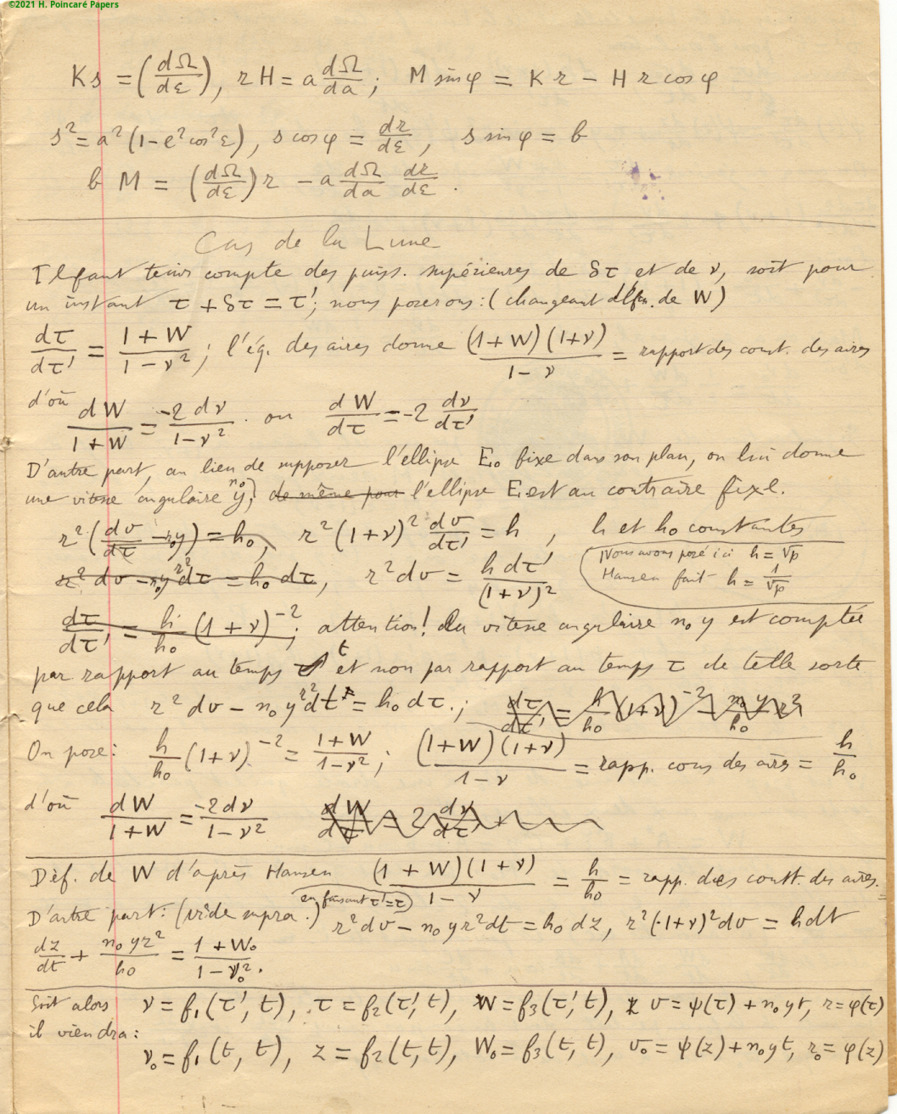 ©2021 H. Poincaré Papers
Ks = (dΩ/dε), rH = a dΩ/da; M sin φ = K r − H r cos φ
s² = a²(1−e²cos²ε), s cos φ = dr/dε, s sin φ = b
b M = (dΩ/dε) r − a dΩ/da dr/dε.
Cas de la Lune
Il faut tenir compte des puiss. supérieures de δτ et de ν, soit pour
un instant τ + δτ = τ'; nous poserons: (changeant de W)
dτ/dτ' = (1+W)/(1−ν²); l'éq. des aires donne (1+W)(1+ν)/(1−ν) = rapport des const. des aires
d'où dW/(1+W) = −2dν/(1−ν²). ou dW/dτ = −2 dν/dτ'
D'autre part, au lieu de supposer l'ellipse E₀ fixe dans son plan, on lui donne
une vitesse angulaire n₀y, de même pour l'ellipse E est au contraire fixe.
r²(dv/dτ − n₀y) = h₀, r²(1+ν)² dv/dτ' = h, h et h₀ constantes
r²dv − n₀y r²dτ = h₀dτ, r²dv = h dτ'/(1+ν)²
(Nous avons posé ici h = √p
Hansen fait h = 1/√p
dτ/dτ' = h/h₀ (1+ν)⁻²; attention! La vitesse angulaire n₀y est comptée
par rapport au temps t et non par rapport au temps τ de telle sorte
que cela r²dv − n₀y r²dt = h₀dτ.; dτ/dτ' = h/h₀ (1+ν)⁻² − n₀y/h₀ r²
On pose: h/h₀ (1+ν)⁻² = (1+W)/(1−ν²); (1+W)(1+ν)/(1−ν) = rapp. cons des aires = h/h₀
d'où dW/(1+W) = −2dν/(1−ν²) dW/dτ = 2 dν/dτ' +
Déf. de W d'après Hansen (1+W)(1+ν)/(1−ν) = h/h₀ = rapp. des constt. des aires.
D'autre part: (vide supra.) en faisant τ' = t) r²dv − n₀y r²dt = h₀dz, r²(1+ν)²dv = hdt
dz/dt + n₀yr²/h₀ = (1+W₀)/(1−ν₀²).
Soit alors ν = f₁(τ', t), τ = f₂(τ', t), W = f₃(τ', t), v = ψ(τ) + n₀yt, r = φ(τ)
il viendra:
ν₀ = f₁(t, t), z = f₂(t, t), W₀ = f₃(t, t), v₀ = ψ(z) + n₀yt, r₀ = φ(z)